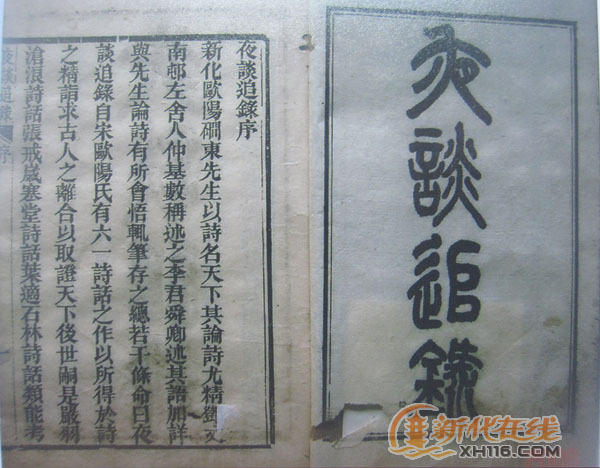 夜談追錄
夜談追錄序
新化歐陽磵東先生以詩名天下其論詩尤精鄧
南邨左舍人仲基數稱述之李君舜卿述其語加詳
與先生論詩有所會悟輒筆存之總若干條命曰夜
談追錄自宋歐陽氏有六一詩話之作以所得於詩
之精詣求古人之離合以取證天下後世嗣是嚴羽
滄浪詩話張戒歲寒堂詩話葉適石林詩話類能考
夜談追錄 序
新化在线
XH116.COM